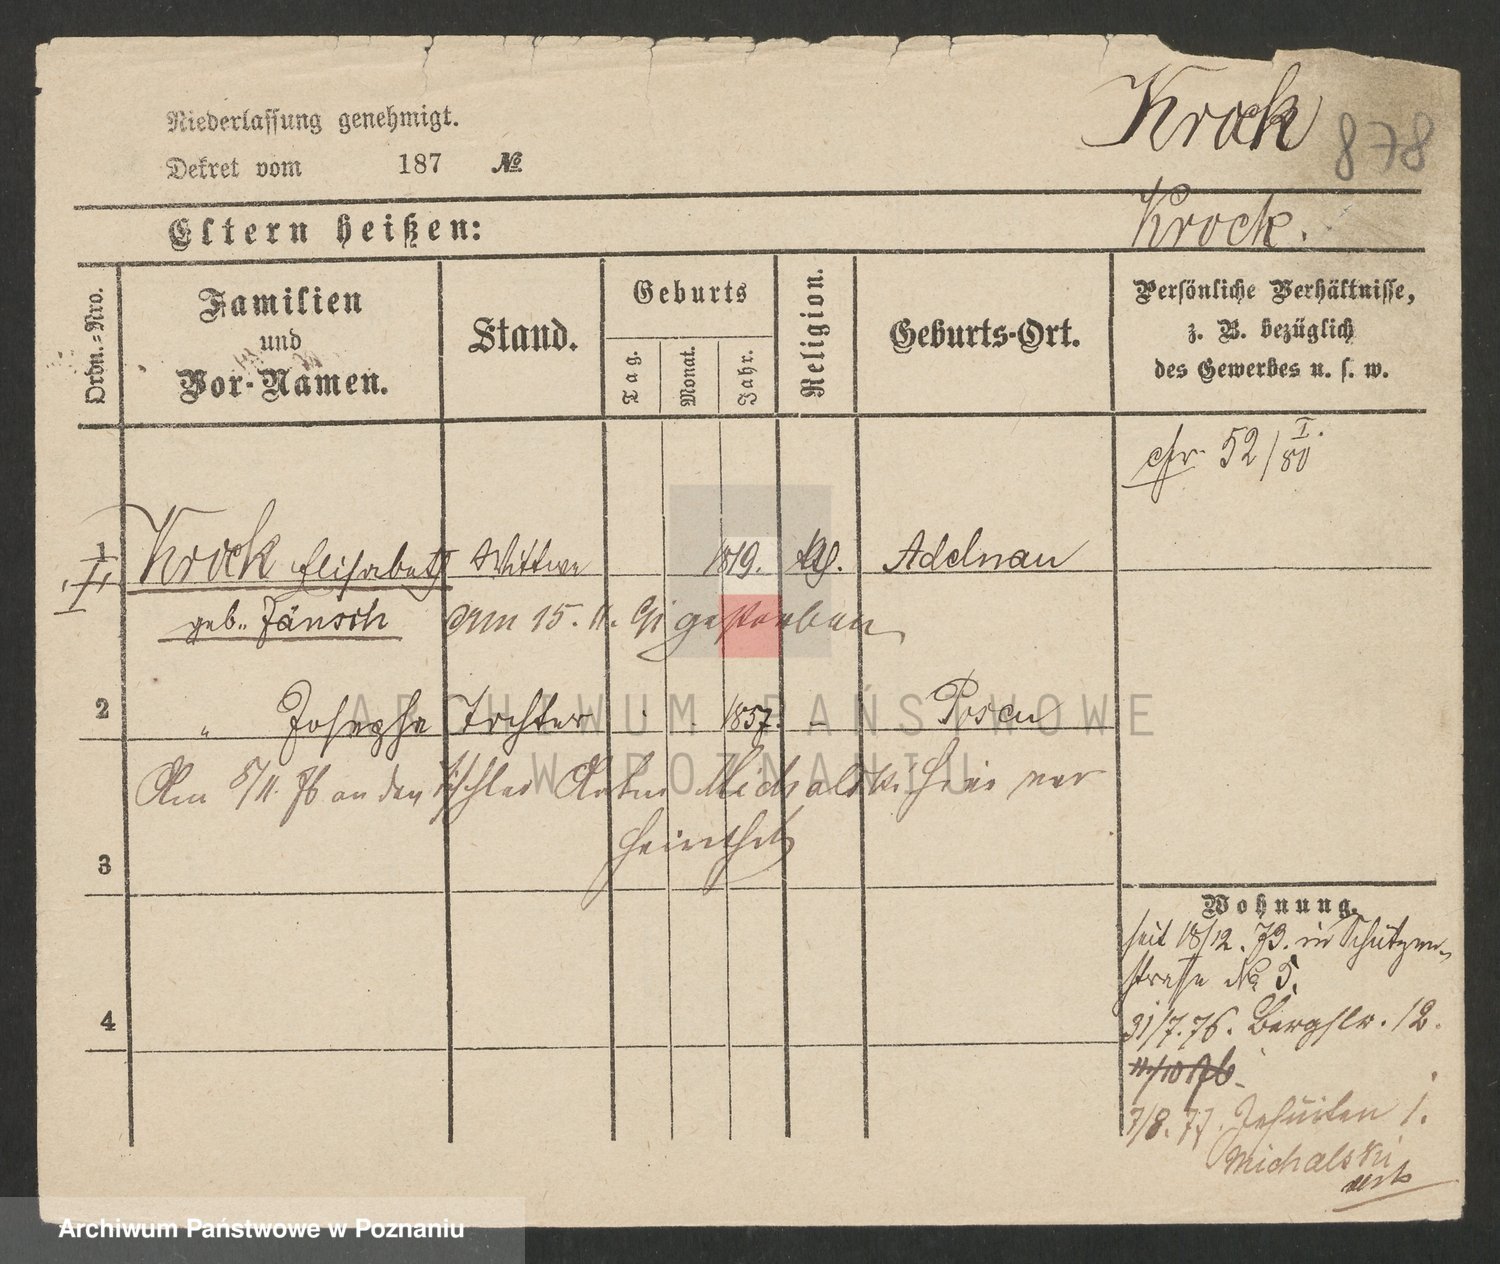 Krock 878
Niederlassung genehmigt.
Dekret vom 187 №
Eltern heißen:
Krock.
Ordn.-Nro.
Familien
und
Vor-Namen.
Stand.
Geburts
Tag.
Monat.
Jahr.
Religion.
Geburts-Ort.
Persönliche Verhältnisse,
z. B. bezüglich
des Gewerbes u. s. w.
cfr 52/I.80
1 Krock Elisabeth Wittwe 1819. Adelnau
I.
geb. Jänsch Am 15. 11. gestorben
2 " Josepha Tochter 1857. – Posen
Am 5/11. 76 an den Tischler Michalski hier ver
heirathet
3
Wohnung.
seit 18/12. 73. in Schützen-
straße No. 5.
4
31/7. 76. Bergstr. 12.
7/8. 77. Jesuiten 1.
Michalski
ARCHIWUM PAŃSTWOWE
W POZNANIU
Archiwum Państwowe w Poznaniu